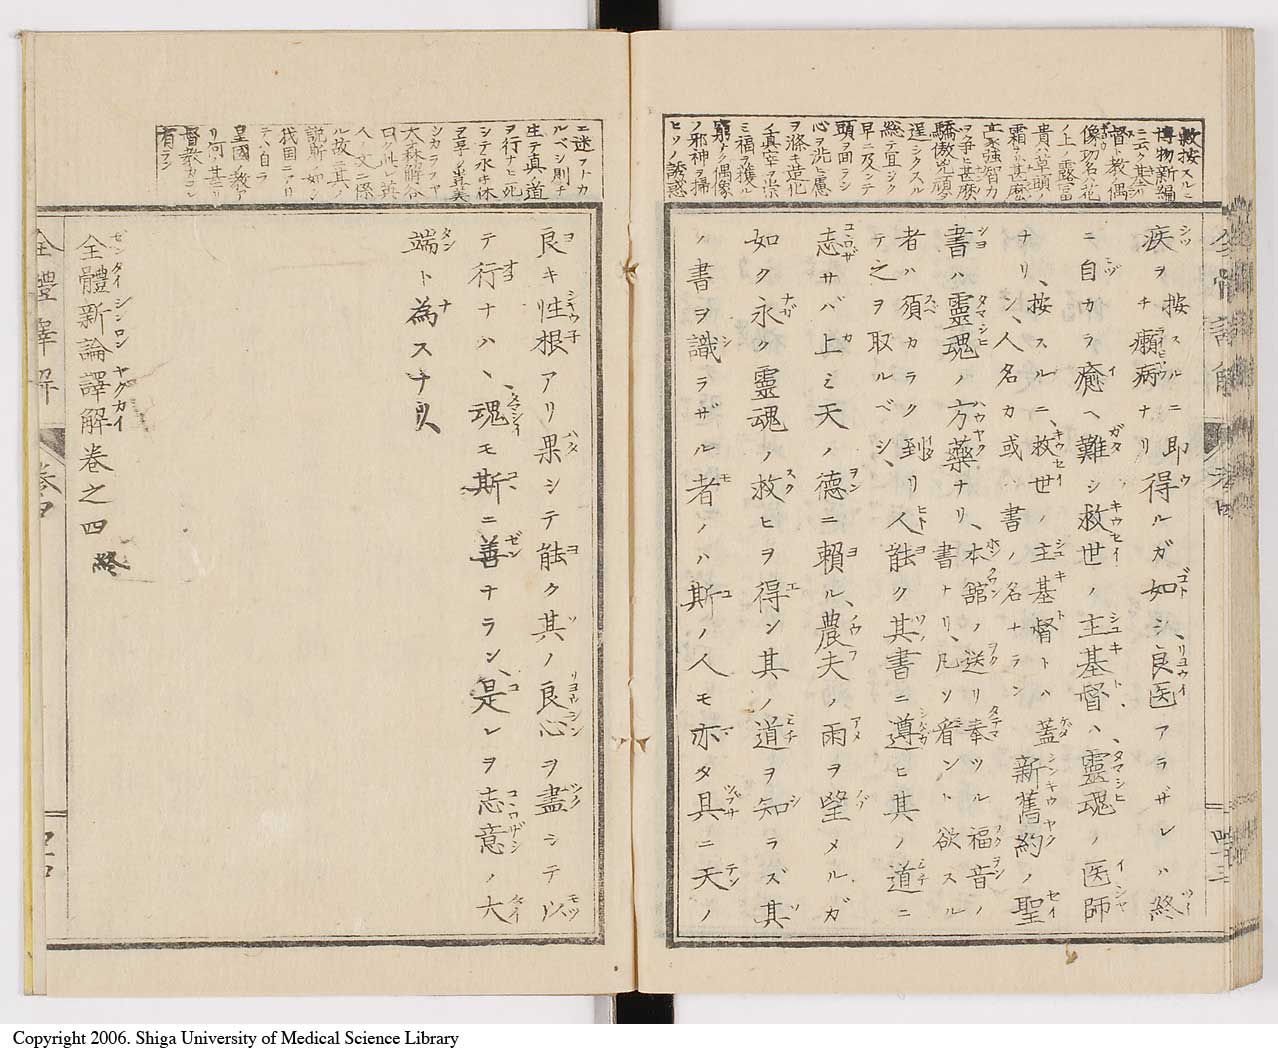 敎按スルニ
博物新編
ニ云ク基
督ノ教偶
像功名ハ花
ノ上ノ露富
貴ハ草頭ノ
霜ナリ甚麽
立家強智力
ヲ爭ヒ甚麽
驕傲兇頑ヲ
逞シクスル
総テ宜シク
早ニ及ンテ
頭ヲ回ラシ
心ヲ洗ヒ慮
ヲ滌キ造化
ノ眞宰ヲ崇
ミ福ヲ獲ル
窮ナク偶像
ノ邪神ヲ掃
ヒソノ誘惑
疾ヲ按スルニ即チ癩病ナリ得ルガ如シ、良医アラザレハ終
ニ自カラ癒ヘ難シ救世ノ主基督ハ、靈魂ノ医師
ナリ、按スルニ、救世ノ主基督トハ蓋シ、人名カ或ハ書ノ名ナラン新舊約ノ聖
書ハ靈魂ノ方藥ナリ、本舘ノ送リ奉ツル福音ノ書ナリ、凡ソ看ント欲スル
者ハ須カラク到リ人能ク其書ニ遵ヒ其ノ道ニ
テ之ヲ取ルベシ、
志サバ上ミ天ノ德ニ賴ル、農夫ノ雨ヲ望メルガ
如ク永ク靈魂ノ救ヒヲ得ン其ノ道ヲ知ラズ其
ノ書ヲ識ラザル者ノハ斯ノ人モ亦タ具ニ天ノ
ニ迷フトカ
ルベシ則チ
生テ眞ノ道
ヲ行ナヒ死
シテ永キ休
シカラズヤ
大森解谷
曰ク此レ英
人ノ文ニ係
ル故ニ其ノ
説斯ノ如シ
我国ニアリ
テハ自ラ
皇國ノ教ア
リ何ゾ基
督教カコレ
有ラン
良キ性根アリ果シテ能ク其ノ良心ヲ盡シテ以
テ行ナハヽ、魂モ斯ニ善ナラン、是レヲ志意ノ大
端ト為スナリ
全體新論譯解卷之四 終
全體譯解 卷四
Copyright 2006. Shiga University of Medical Science Library